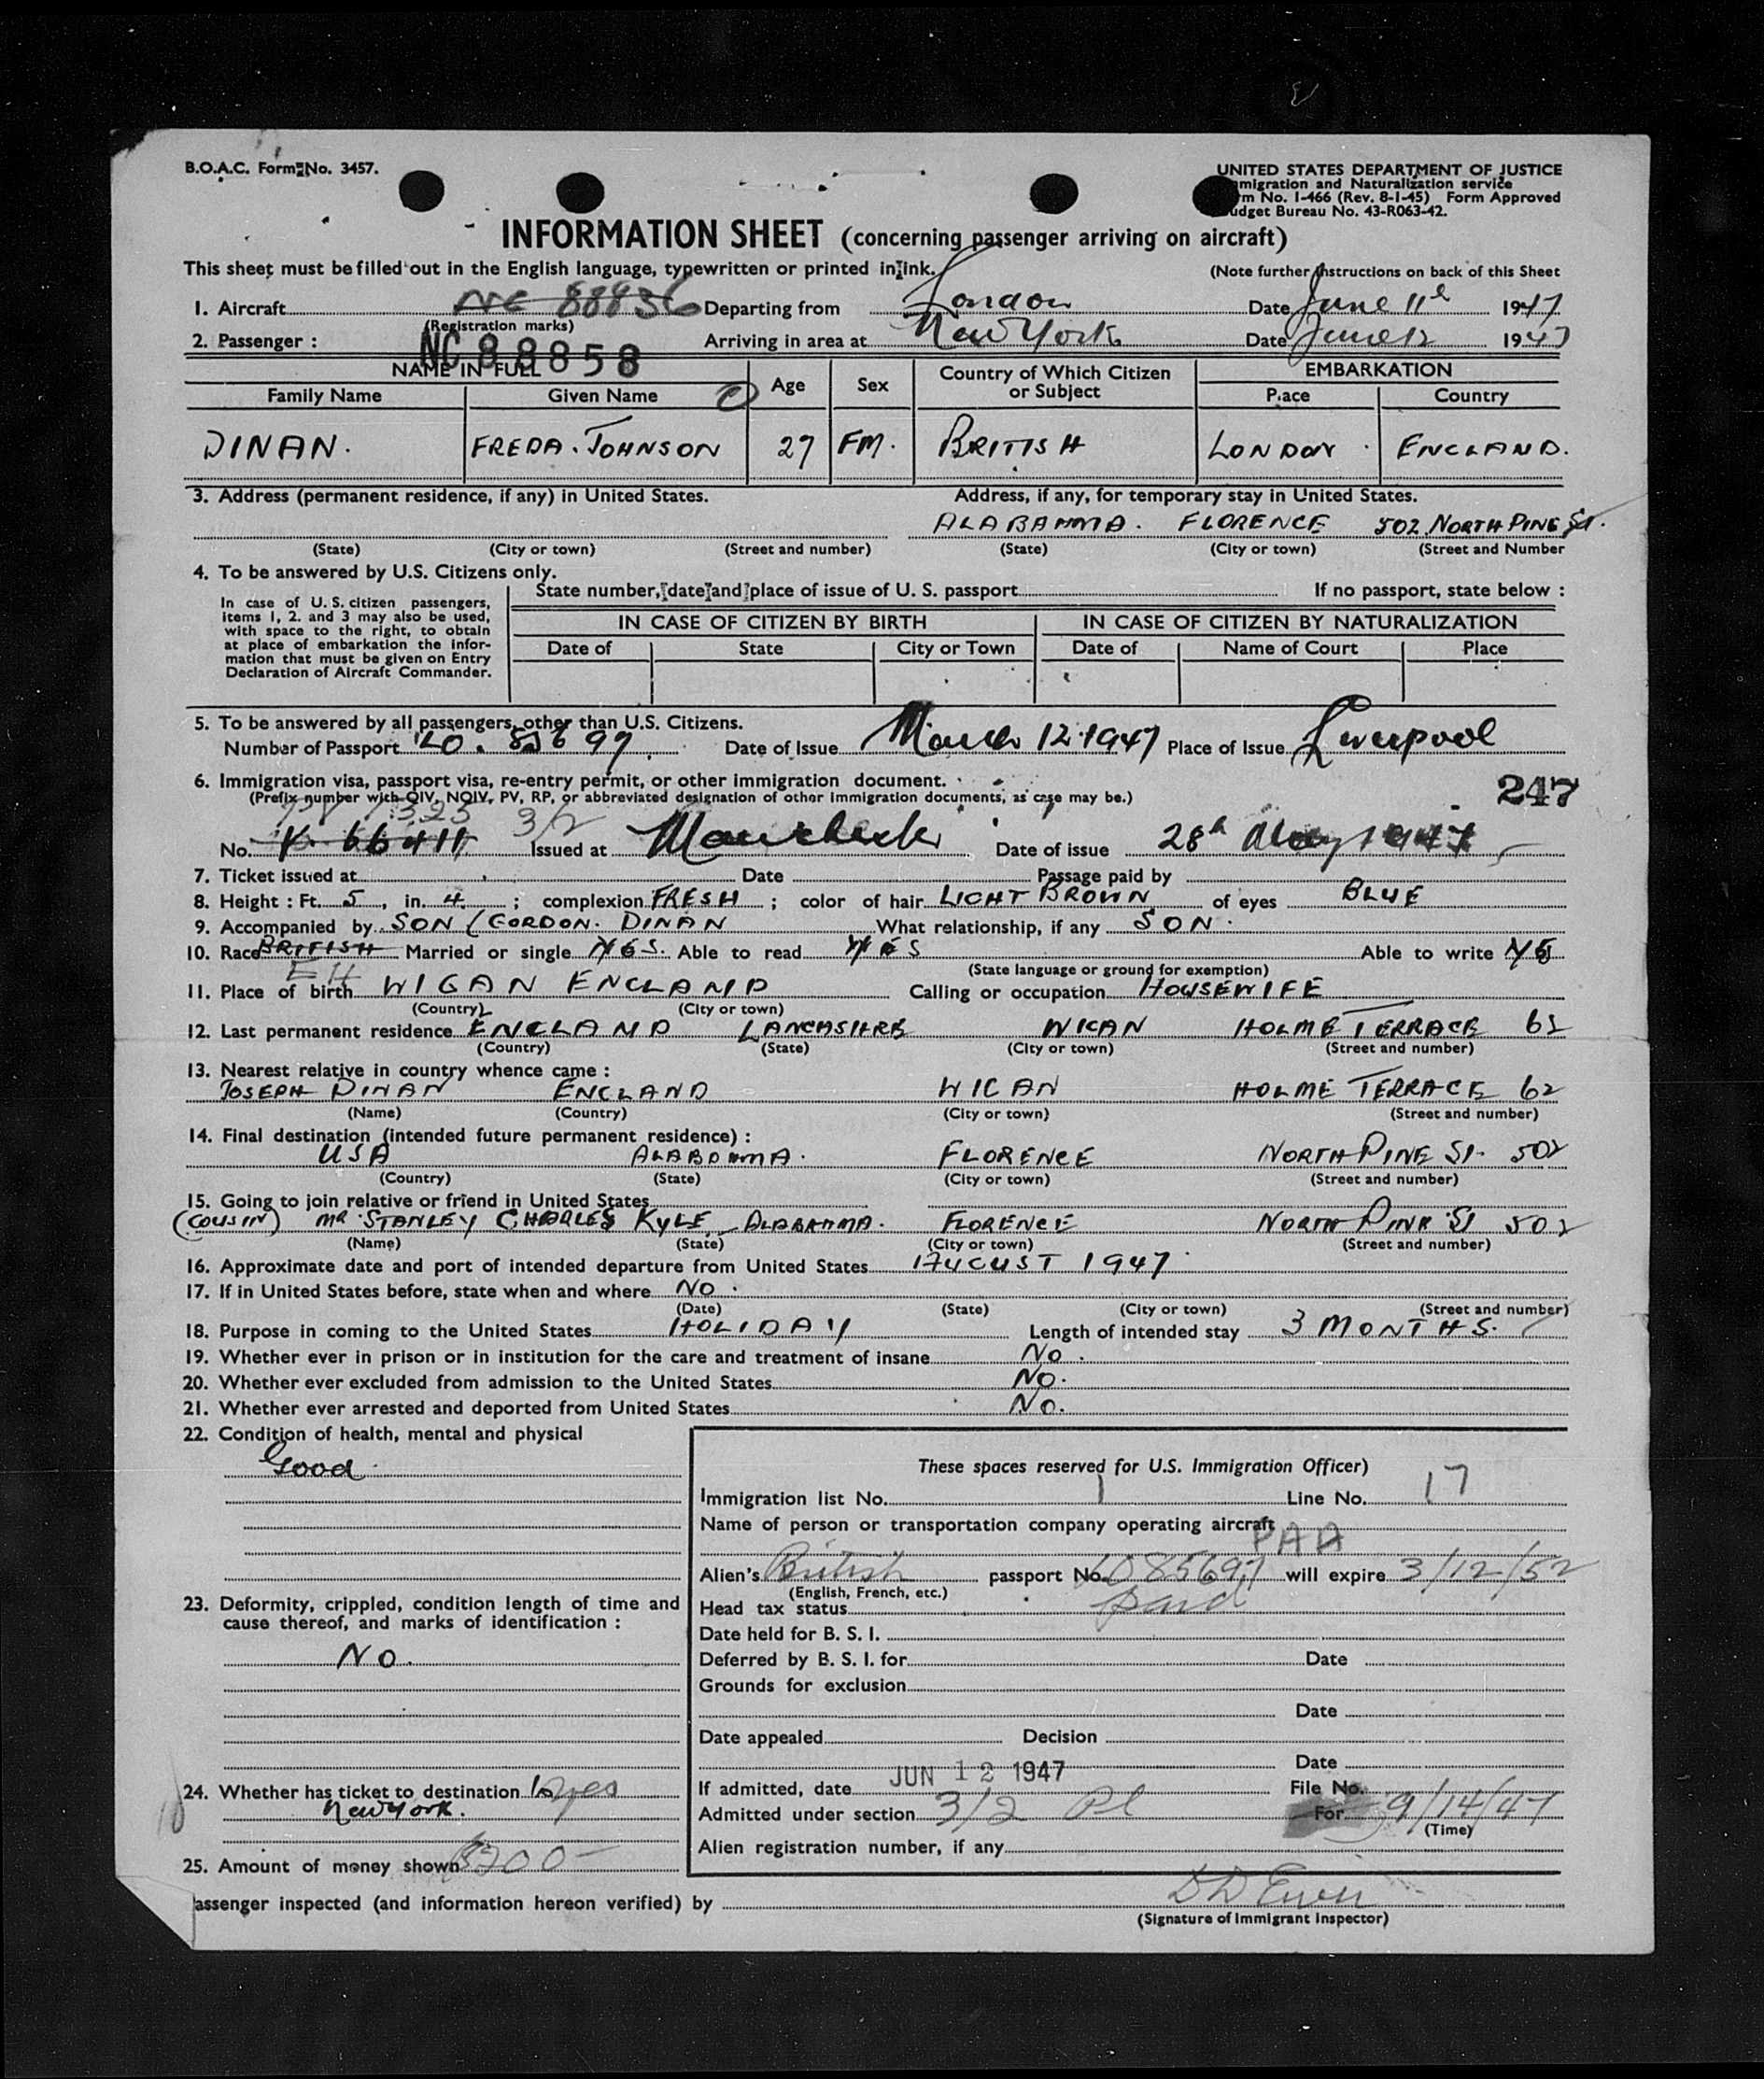 B.O.A.C. Form No. 3457.
UNITED STATES DEPARTMENT OF JUSTICE
migration and Naturalization service
rm No. I-466 (Rev. 8-1-45) Form Approved
udget Bureau No. 43-R063-42.
INFORMATION SHEET (concerning passenger arriving on aircraft)
This sheet must be filled out in the English language, typewritten or printed in ink. (Note further instructions on back of this Sheet
1. Aircraft NC 88836 Departing from London Date June 11th 1947
(Registration marks)
2. Passenger : NC 88858 Arriving in area at New York Date June 12 1947
NAME IN FULL Age Sex Country of Which Citizen or Subject EMBARKATION
Family Name Given Name Place Country
DINAN. FREDA. JOHNSON 27 FM. BRITISH LONDON ENGLAND.
3. Address (permanent residence, if any) in United States. Address, if any, for temporary stay in United States.
ALABAMMA. FLORENCE 502 NORTH PINE ST.
(State) (City or town) (Street and number) (State) (City or town) (Street and Number
4. To be answered by U.S. Citizens only.
State number, date and place of issue of U. S. passport If no passport, state below :
In case of U. S. citizen passengers,
items 1, 2. and 3 may also be used,
with space to the right, to obtain
at place of embarkation the infor-
mation that must be given on Entry
Declaration of Aircraft Commander.
IN CASE OF CITIZEN BY BIRTH IN CASE OF CITIZEN BY NATURALIZATION
Date of State City or Town Date of Name of Court Place
5. To be answered by all passengers, other than U.S. Citizens.
Number of Passport Date of Issue March 12 1947 Place of Issue Liverpool
6. Immigration visa, passport visa, re-entry permit, or other immigration document. 247
(Prefix number with QIV, NQIV, PV, RP, or abbreviated designation of other immigration documents, as case may be.)
PV 1323 3/2
No. V. 66411 Issued at Date of issue 28th May 1947
7. Ticket issued at Date Passage paid by
8. Height : Ft. 5, in. 4 ; complexion FRESH ; color of hair LIGHT BROWN of eyes BLUE
9. Accompanied by SON (GORDON. DINAN What relationship, if any SON.
10. Race BRITISH Married or single YES. Able to read YES Able to write YES
EH (State language or ground for exemption)
11. Place of birth WIGAN ENGLAND Calling or occupation HOUSEWIFE
(Country) (City or town)
12. Last permanent residence ENGLAND LANCASHIRE WIGAN HOLME TERRACE 62
(Country) (State) (City or town) (Street and number)
13. Nearest relative in country whence came :
JOSEPH DINAN ENGLAND WIGAN HOLME TERRACE 62
(Name) (Country) (City or town) (Street and number)
14. Final destination (intended future permanent residence) :
USA ALABAMMA. FLORENCE NORTH PINE ST. 502
(Country) (State) (City or town) (Street and number)
15. Going to join relative or friend in United States
(COUSIN) MR. STANLEY CHARLES KYLE ALABAMMA. FLORENCE NORTH PINE ST 502
(Name) (State) (City or town) (Street and number)
16. Approximate date and port of intended departure from United States AUGUST 1947
17. If in United States before, state when and where NO.
(Date) (State) (City or town) (Street and number)
18. Purpose in coming to the United States HOLIDAY Length of intended stay 3 MONTHS.
19. Whether ever in prison or in institution for the care and treatment of insane NO.
20. Whether ever excluded from admission to the United States NO.
21. Whether ever arrested and deported from United States NO.
22. Condition of health, mental and physical
Good
These spaces reserved for U.S. Immigration Officer)
Immigration list No. 1 Line No. 17
Name of person or transportation company operating aircraft
PAA
Alien's British passport No. L085697 will expire 3/12/52
(English, French, etc.)
23. Deformity, crippled, condition length of time and
cause thereof, and marks of identification :
NO.
Head tax status paid
Date held for B. S. I.
Deferred by B. S. I. for Date
Grounds for exclusion
Date
Date appealed Decision
Date
24. Whether has ticket to destination yes
New York.
If admitted, date JUN 12 1947 File No.
Admitted under section 3/2 For 9/14/47
(Time)
Alien registration number, if any
25. Amount of money shown $200-
assenger inspected (and information hereon verified) by
(Signature of Immigrant Inspector)